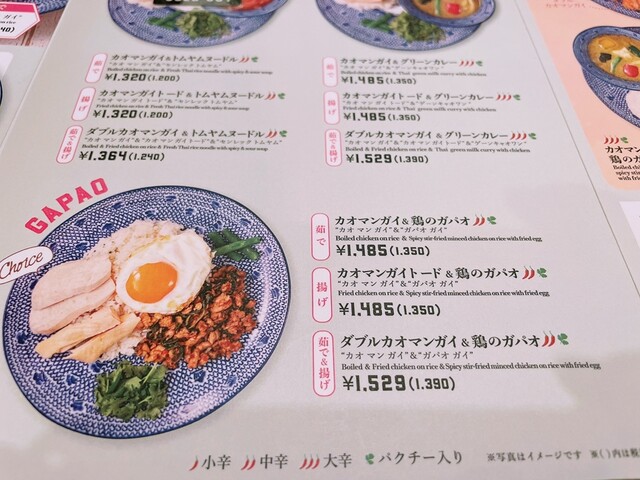 カオマンガイ&トムヤムヌードル
Boiled chicken on rice & Fresh Thai rice noodle with spicy & sour soup
茹で
¥1,320(1,200)
カオマンガイトード&トムヤムヌードル
Fried chicken on rice & Fresh Thai rice noodle with spicy & sour soup
揚げ
¥1,320(1,200)
ダブルカオマンガイ&トムヤムヌードル
Boiled & Fried chicken on rice & Fresh Thai rice noodle with spicy & sour soup
茹で&揚げ
¥1,364(1,240)
カオマンガイ&グリーンカレー
Boiled chicken on rice & Thai green milk curry with chicken
茹で
¥1,485(1,350)
カオマンガイトード&グリーンカレー
Fried chicken on rice & Thai green milk curry with chicken
揚げ
¥1,485(1,350)
ダブルカオマンガイ&グリーンカレー
Boiled & Fried chicken on rice & Thai green milk curry with chicken
茹で&揚げ
¥1,529(1,390)
GAPAO
Choice
茹で
カオマンガイ&鶏のガパオ
“カオ マン ガイ”&“ガパオ ガイ”
Boiled chicken on rice & Spicy stir-fried minced chicken on rice with fried egg
¥1,485(1,350)
揚げ
カオマンガイトード&鶏のガパオ
“カオ マン ガイ”&“ガパオ ガイ”
Fried chicken on rice & Spicy stir-fried minced chicken on rice with fried egg
¥1,485(1,350)
茹で&揚げ
ダブルカオマンガイ&鶏のガパオ
“カオ マン ガイ”&“ガパオ ガイ”
Boiled & Fried chicken on rice & Spicy stir-fried minced chicken on rice with fried egg
¥1,529(1,390)
小辛 中辛 大辛 パクチー入り ※写真はイメージです ※( )内は税